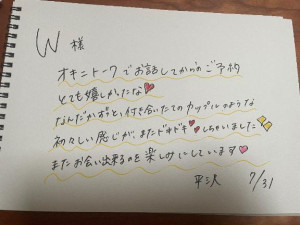 W 様
オキニトークでお話してからのご予約
とても嬉しかったな
なんだかずっと付き合いたてのカップルのような
初々しい感じが、またドキドキしちゃいました
またお会い出来るのを楽しみにしています
平沢 7/31